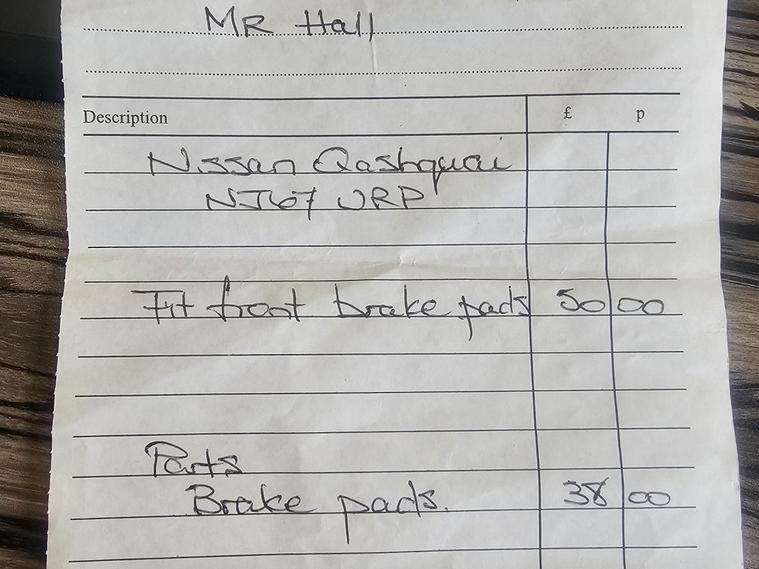 MR Hall
Description £ p
Nissan Qashquai
NJ67 URP
Fit front brake pads 50 00
Parts
Brake pads. 38 00